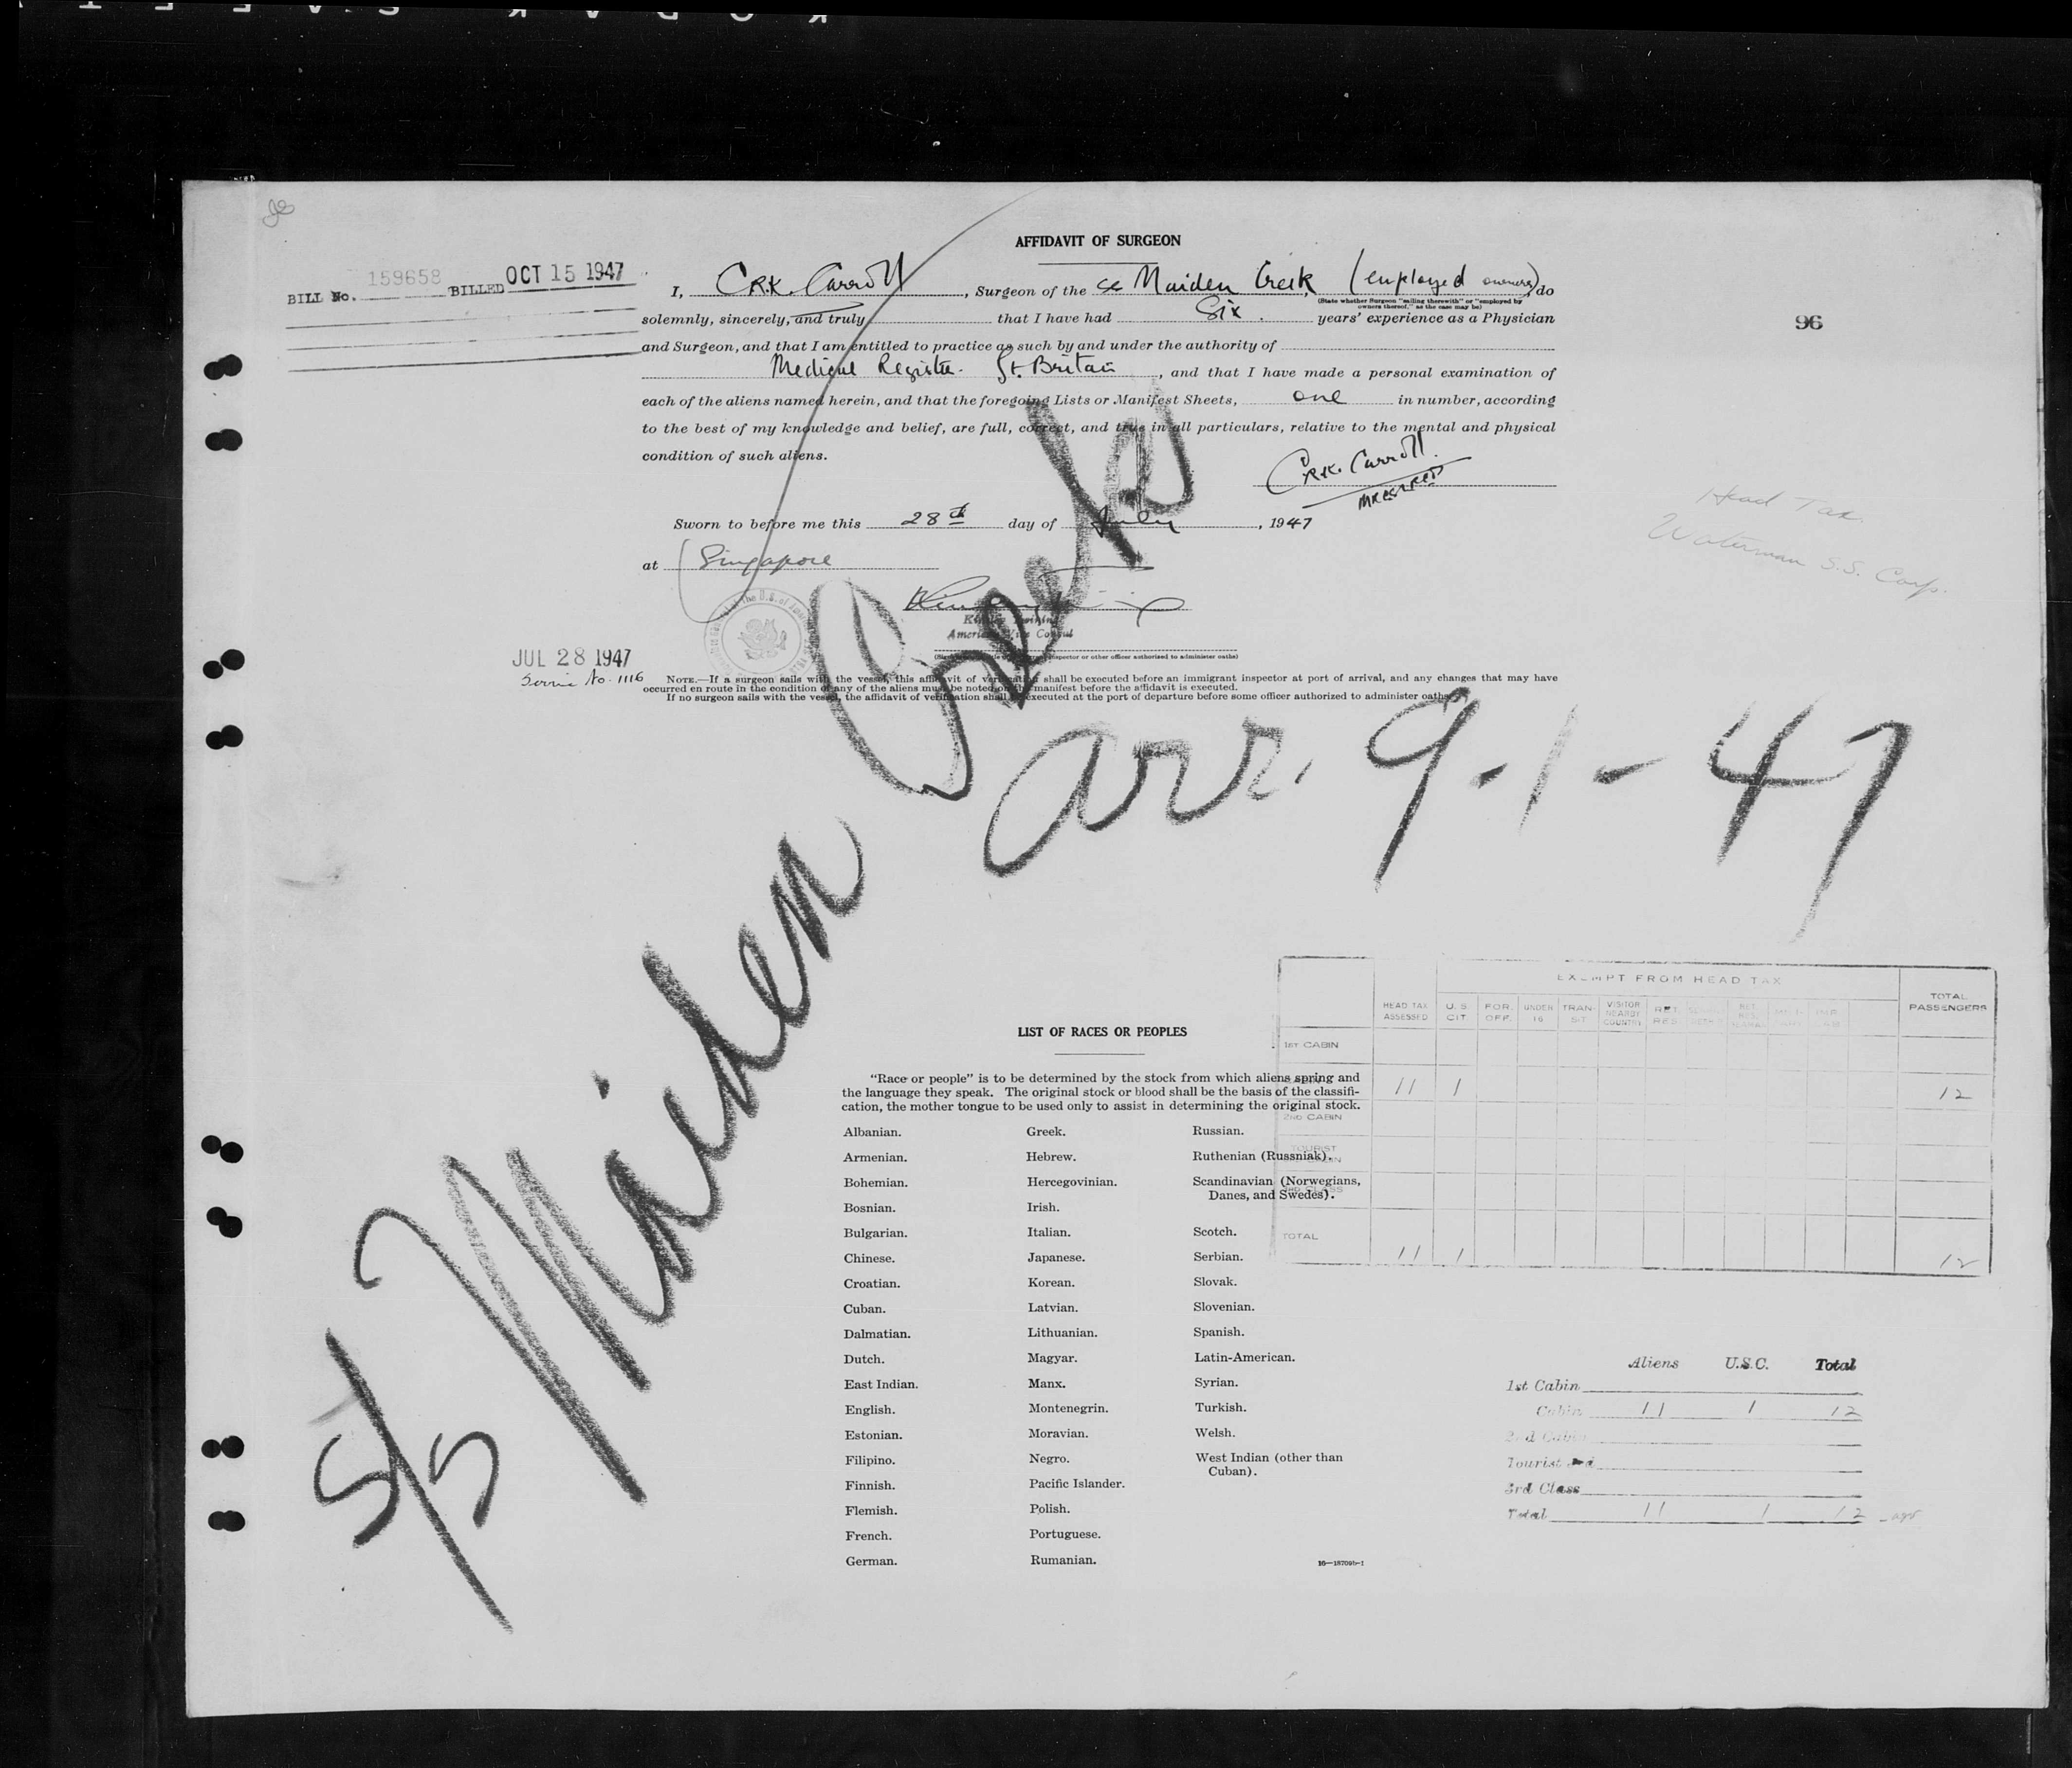 AFFIDAVIT OF SURGEON
BILL No. 159658 BILLED OCT 15 1947
I, C.R.K. Carroll, Surgeon of the SS Maiden Creek (employed owners) do
(State whether Surgeon "sailing therewith" or "employed by
owners thereof," as the case may be)
solemnly, sincerely, and truly that I have had Six years' experience as a Physician
96
and Surgeon, and that I am entitled to practice as such by and under the authority of
Medical Register Gt. Britain, and that I have made a personal examination of
each of the aliens named herein, and that the foregoing Lists or Manifest Sheets, one in number, according
to the best of my knowledge and belief, are full, correct, and true in all particulars, relative to the mental and physical
condition of such aliens.
C.R.K. Carroll.
Head Tax.
Waterman S.S. Corp.
Sworn to before me this 28th day of July, 1947
at Singapore
American Vice Consul
inspector or other officer authorized to administer oaths)
JUL 28 1947
Service No. 1116
NOTE.—If a surgeon sails with the vessel, this affidavit of verification shall be executed before an immigrant inspector at port of arrival, and any changes that may have
occurred en route in the condition of any of the aliens must be noted on the manifest before the affidavit is executed.
If no surgeon sails with the vessel, the affidavit of verification shall be executed at the port of departure before some officer authorized to administer oaths.
S/S Maiden Creek
arr. 9-1-47
EXEMPT FROM HEAD TAX
HEAD TAX ASSESSED U.S. CIT. FOR. OFF. UNDER 16 TRANSIT VISITOR NEARBY COUNTRY RET. RES. TOTAL PASSENGERS
1ST CABIN
11 1 12
2ND CABIN
TOURIST
TOTAL 11 1 12
LIST OF RACES OR PEOPLES
"Race or people" is to be determined by the stock from which aliens spring and
the language they speak. The original stock or blood shall be the basis of the classifi-
cation, the mother tongue to be used only to assist in determining the original stock.
Albanian.
Armenian.
Bohemian.
Bosnian.
Bulgarian.
Chinese.
Croatian.
Cuban.
Dalmatian.
Dutch.
East Indian.
English.
Estonian.
Filipino.
Finnish.
Flemish.
French.
German.
Greek.
Hebrew.
Hercegovinian.
Irish.
Italian.
Japanese.
Korean.
Latvian.
Lithuanian.
Magyar.
Manx.
Montenegrin.
Moravian.
Negro.
Pacific Islander.
Polish.
Portuguese.
Rumanian.
Russian.
Ruthenian (Russniak).
Scandinavian (Norwegians,
Danes, and Swedes).
Scotch.
Serbian.
Slovak.
Slovenian.
Spanish.
Latin-American.
Syrian.
Turkish.
Welsh.
West Indian (other than
Cuban).
16—18709b-1
Aliens U.S.C. Total
1st Cabin
Cabin 11 1 12
2nd Cabin
Tourist
3rd Class
Total 11 1 12